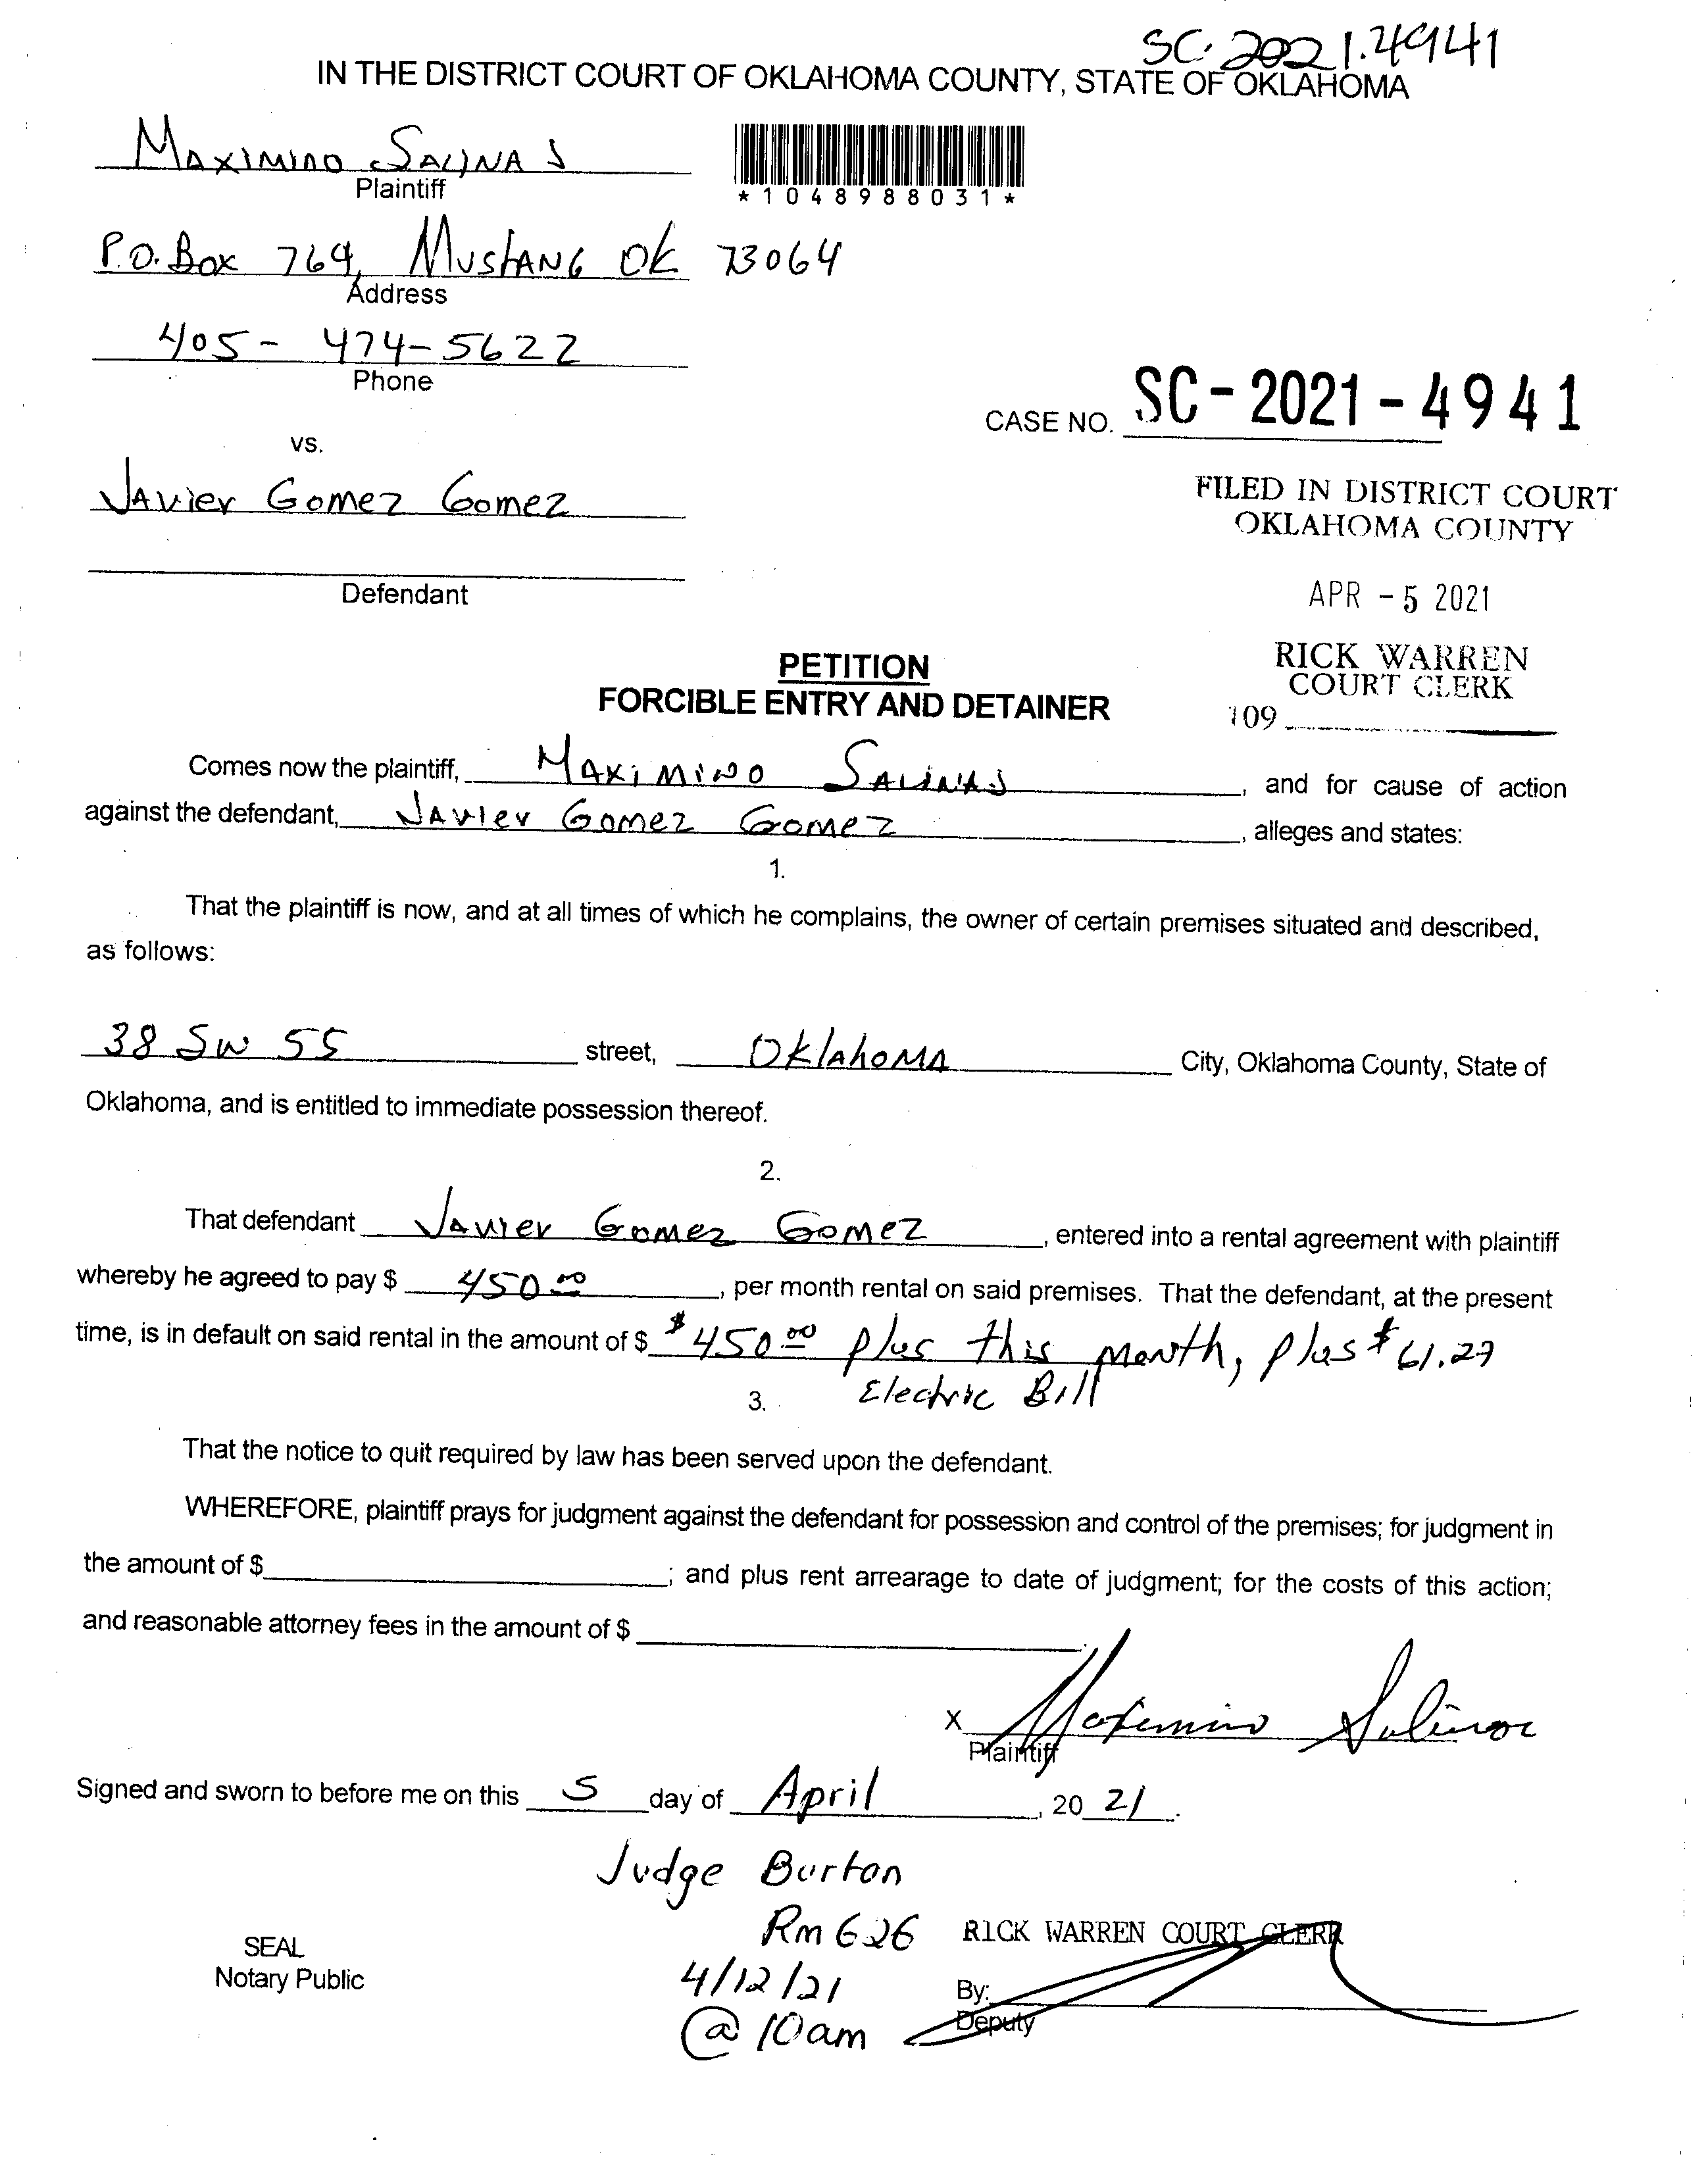 SC-2021-4941
IN THE DISTRICT COURT OF OKLAHOMA COUNTY, STATE OF OKLAHOMA
MAXIMINO SALINAS
Plaintiff
*1048988031*
P.O. Box 764, MUSTANG OK 73064
Address
405-474-5622
Phone
CASE NO. SC-2021-4941
vs.
Javier Gomez Gomez
FILED IN DISTRICT COURT
OKLAHOMA COUNTY
Defendant
APR -5 2021
RICK WARREN
COURT CLERK
109
PETITION
FORCIBLE ENTRY AND DETAINER
Comes now the plaintiff, MAXIMINO SALINAS, and for cause of action
against the defendant, JAVIER Gomez Gomez, alleges and states:
1.
That the plaintiff is now, and at all times of which he complains, the owner of certain premises situated and described,
as follows:
38 SW 55 street, OklahoMA City, Oklahoma County, State of
Oklahoma, and is entitled to immediate possession thereof.
2.
That defendant Javier Gomez Gomez, entered into a rental agreement with plaintiff
whereby he agreed to pay $ 450.00, per month rental on said premises. That the defendant, at the present
time, is in default on said rental in the amount of $ $450.00 plus this month, plus $61.27
Electric Bill
3.
That the notice to quit required by law has been served upon the defendant.
WHEREFORE, plaintiff prays for judgment against the defendant for possession and control of the premises; for judgment in
the amount of $ ; and plus rent arrearage to date of judgment; for the costs of this action;
and reasonable attorney fees in the amount of $ .
X Maximino Salinas
Plaintiff
Signed and sworn to before me on this 5 day of April, 20 21.
Judge Burton
Rm 626
4/12/21
@ 10am
SEAL
Notary Public
RICK WARREN COURT CLERK
By:
Deputy